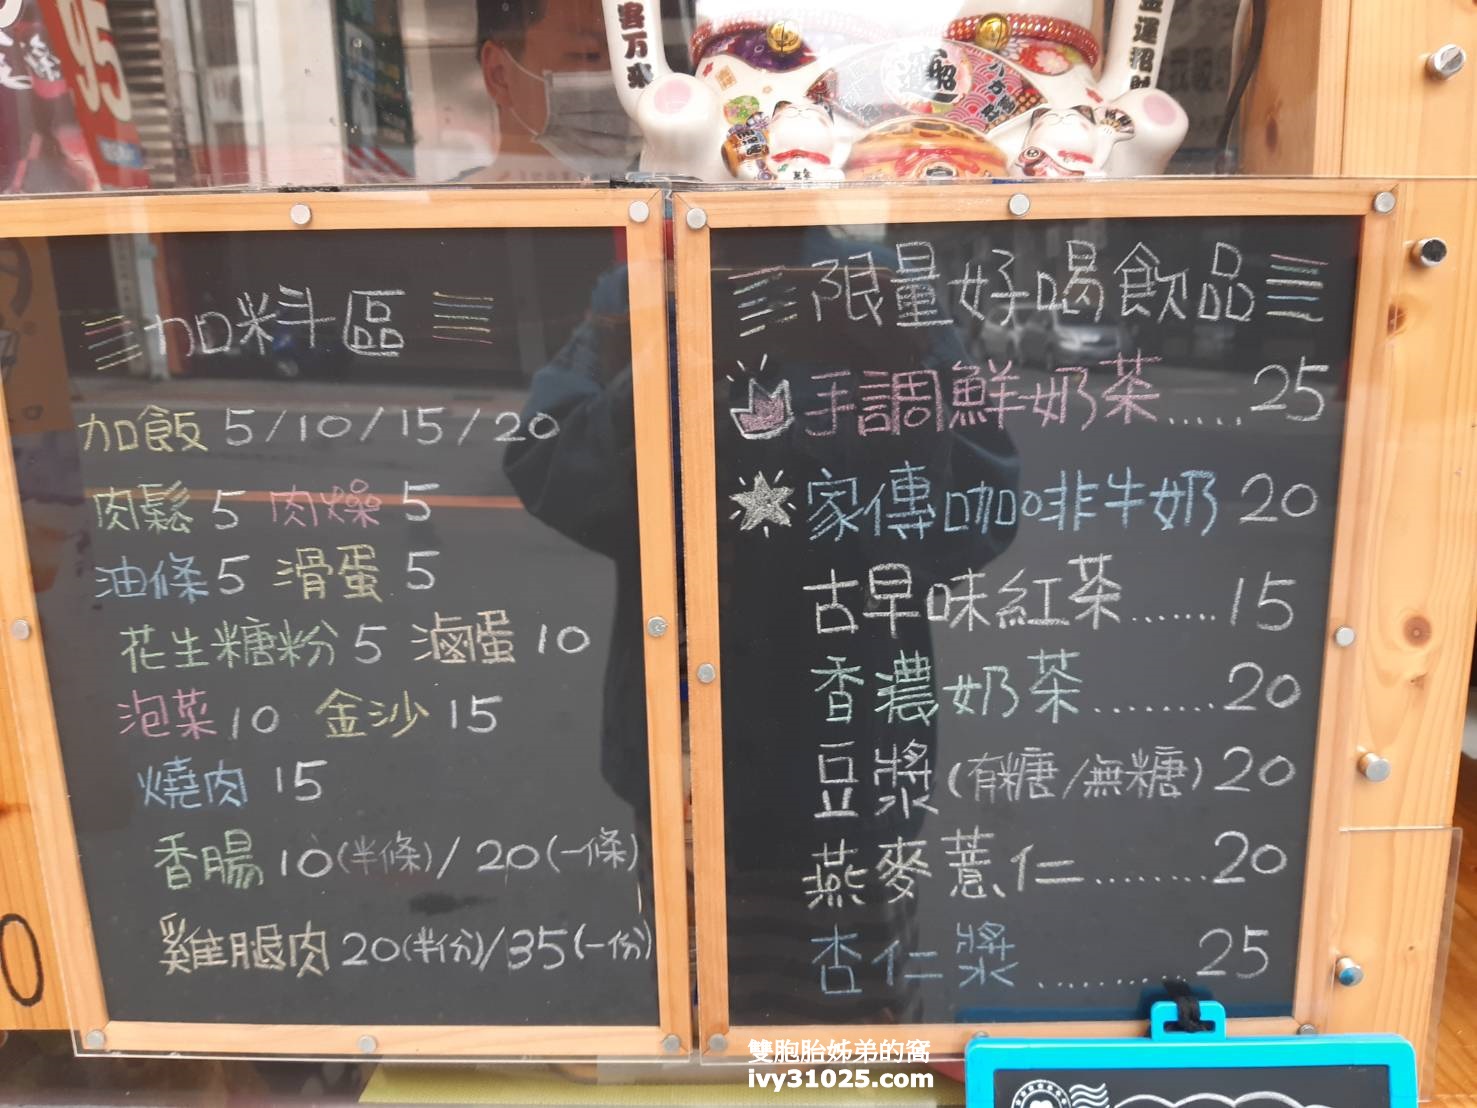 客万來
金運招財
95
招
加料區
加飯 5/10/15/20
肉鬆 5 肉燥 5
油條 5 滑蛋 5
花生糖粉 5 滷蛋 10
泡菜 10 金沙 15
燒肉 15
香腸 10(半條)/20(一條)
雞腿肉 20(半份)/35(一份)
限量好喝飲品
手調鮮奶茶.....25
家傳咖啡牛奶 20
古早味紅茶.......15
香濃奶茶........20
豆漿(有糖/無糖) 20
燕麥薏仁........20
杏仁漿..........25
雙胞胎姊弟的窩
ivy31025.com